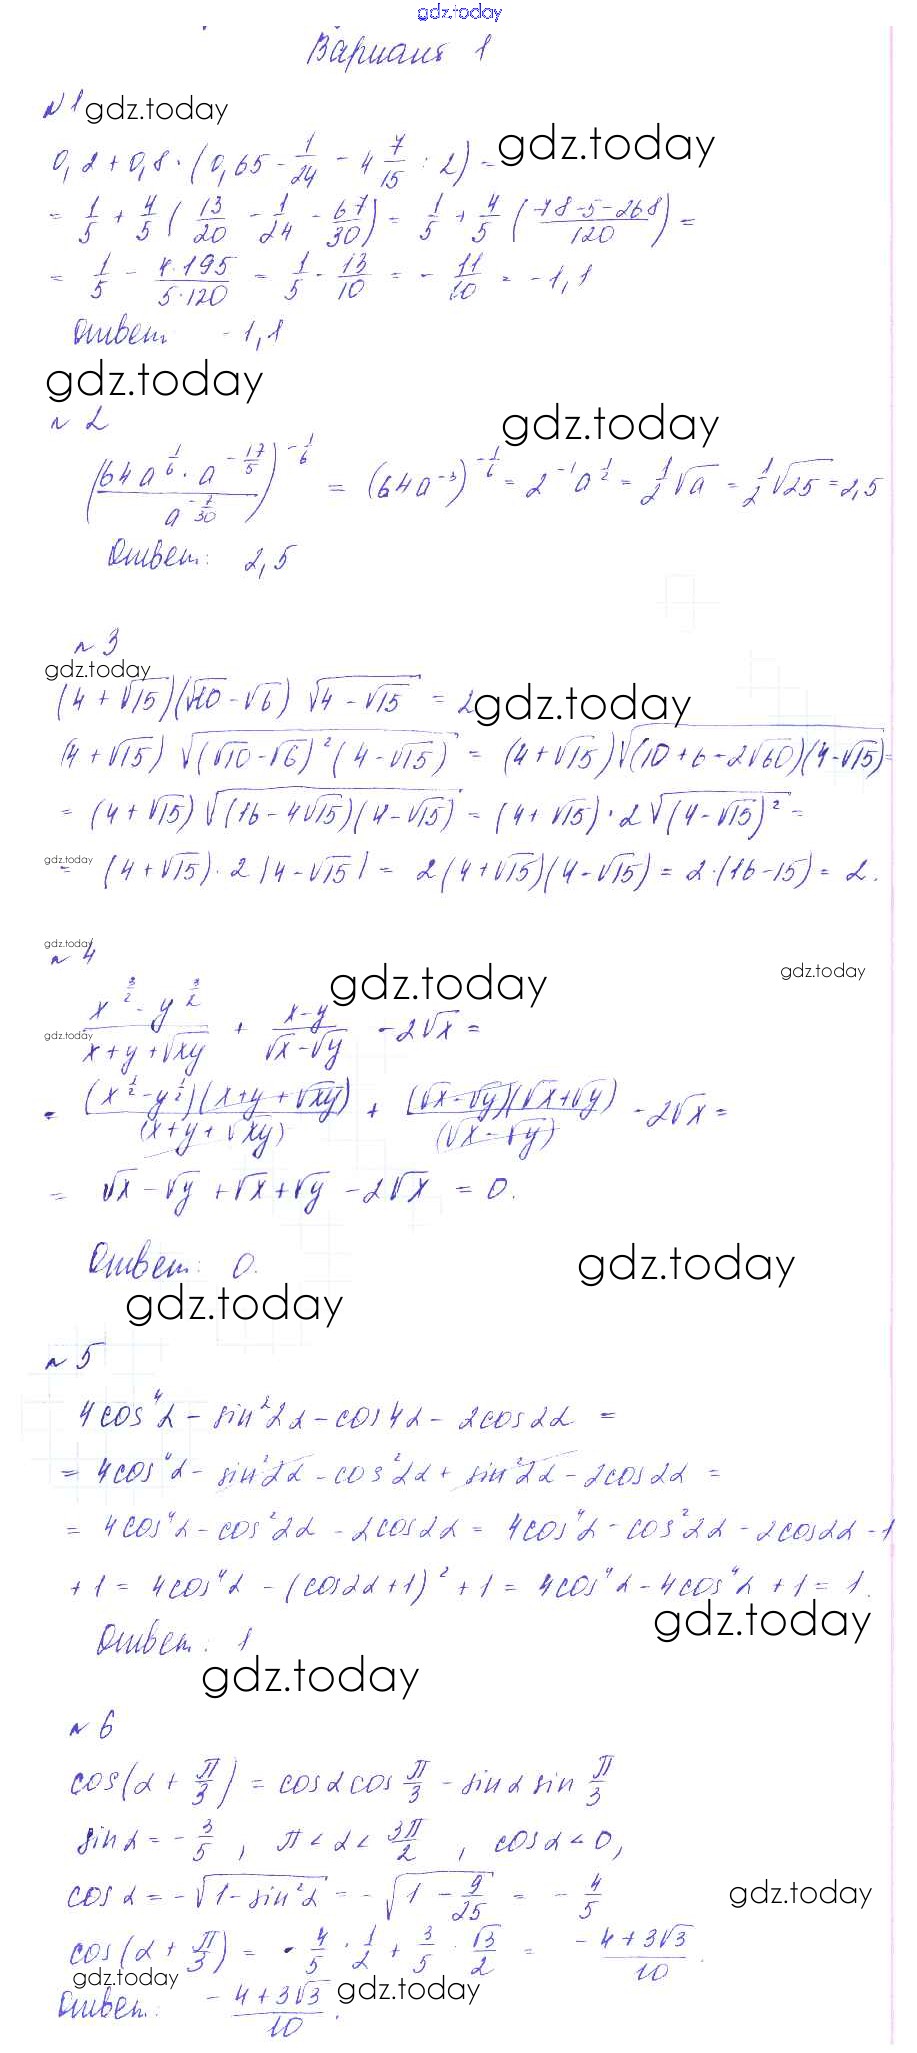 gdz.today
Вариант 1
№1 gdz.today
0,2 + 0,8 · (0,65 - 1/24 - 4 7/15 : 2) = gdz.today
= 1/5 + 4/5 (13/20 - 1/24 - 67/30) = 1/5 + 4/5 ((78-5-268)/120) =
= 1/5 - (4·195)/(5·120) = 1/5 - 13/10 = - 11/10 = -1,1
Ответ: -1,1
gdz.today
№2 gdz.today
((64a^(1/6) · a^(-17/5))/a^(-7/30))^(-1/6) = (64a^(-3))^(-1/6) = 2^(-1)a^(1/2) = 1/2 √a = 1/2 √25 = 2,5
Ответ: 2,5
№3
gdz.today
(4 + √15)(√10 - √6) √(4 - √15) = 2 gdz.today
(4 + √15) √((√10-√6)²(4-√15)) = (4+√15)√((10+6-2√60)(4-√15)) =
= (4+√15) √((16-4√15)(4-√15)) = (4+√15)·2√((4-√15)²) =
gdz.today
= (4+√15)·2|4-√15| = 2(4+√15)(4-√15) = 2·(16-15) = 2.
gdz.today
№4
gdz.today gdz.today
(x^(3/2) - y^(3/2))/(x+y+√xy) + (x-y)/(√x-√y) - 2√x =
gdz.today
= ((x^(1/2)-y^(1/2))(x+y+√xy))/(x+y+√xy) + ((√x-√y)(√x+√y))/(√x-√y) - 2√x =
= √x - √y + √x + √y - 2√x = 0.
Ответ: 0.
gdz.today
gdz.today
№5
4cos⁴α - sin²2α - cos4α - 2cos2α =
= 4cos⁴α - sin²2α - cos²2α + sin²2α - 2cos2α =
= 4cos⁴α - cos²2α - 2cos2α = 4cos⁴α - cos²2α - 2cos2α - 1
+ 1 = 4cos⁴α - (cos2α+1)² + 1 = 4cos⁴α - 4cos⁴α + 1 = 1.
gdz.today
Ответ: 1
gdz.today
№6
cos(α + π/3) = cosα cos π/3 - sinα sin π/3
sinα = - 3/5, π < α < 3π/2, cosα < 0,
cosα = -√(1-sin²α) = -√(1 - 9/25) = - 4/5
gdz.today
cos(α + π/3) = - 4/5 · 1/2 + 3/5 · √3/2 = (-4+3√3)/10.
gdz.today
Ответ: (-4+3√3)/10. gdz.today